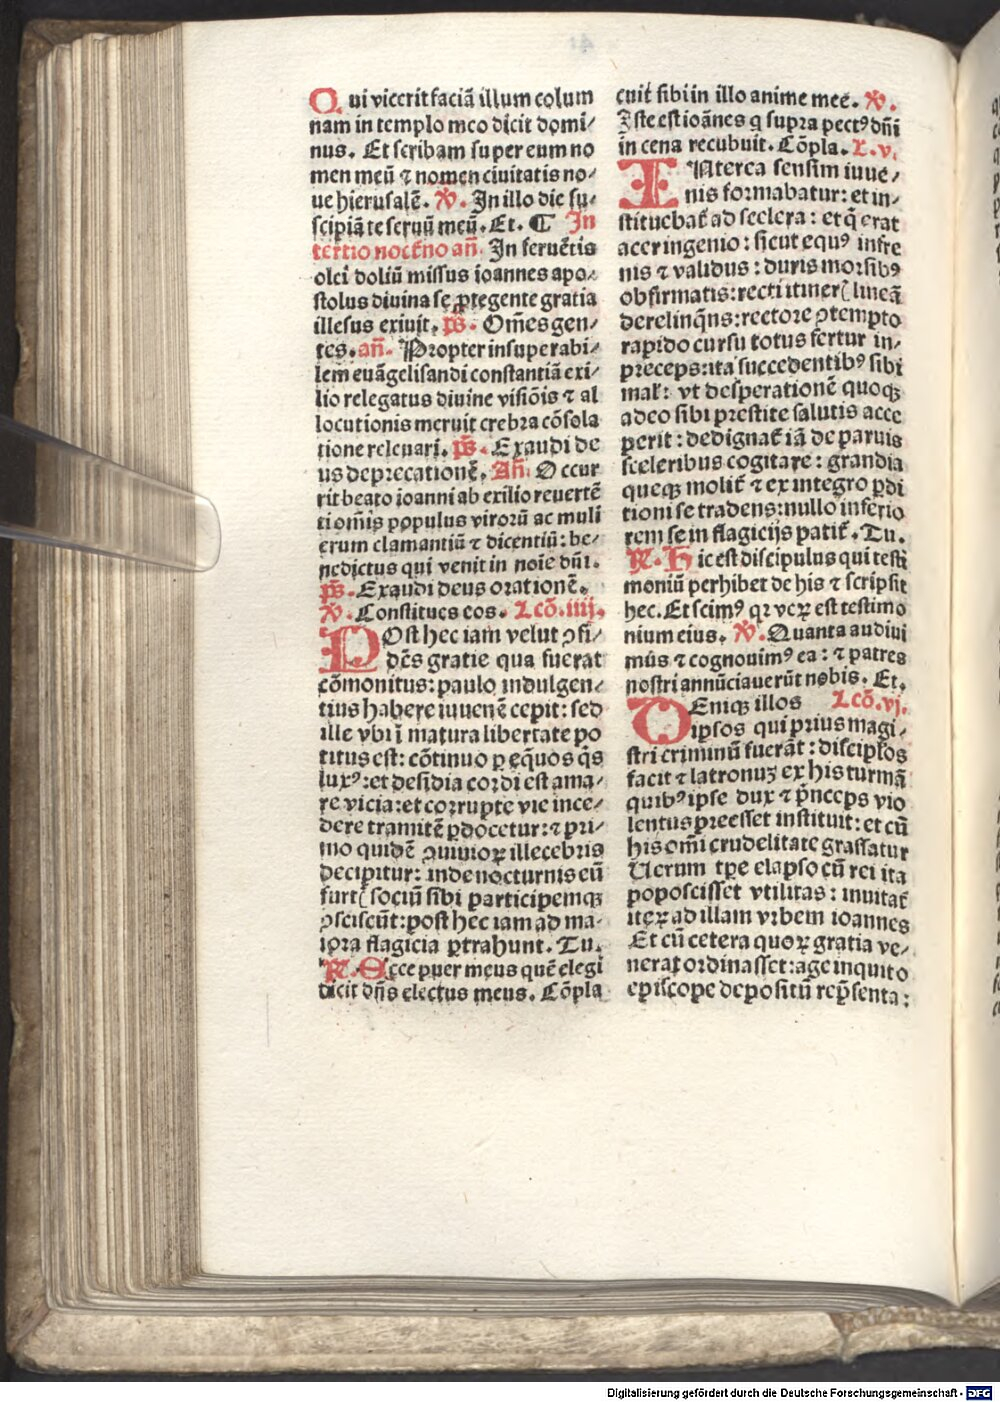 Qui vicerit faciā illum colum
nam in templo meo dicit domi⸗
nus. Et scribam super eum no
men meū ⁊ nomen ciuitatis no⸗
ue hierusalē. ℣. In illo die su⸗
scipiā te seruū meū. Et. ¶ In
tertio nocťno añ. In feruētis
olei doliū missus ioannes apo⸗
stolus diuina se ꝓtegente gratia
illesus exiuit. p̄s. Om̄es gen⸗
tes. añ. Propter insuperabi⸗
lem euāgelisandi constantiā exi⸗
lio relegatus diuine visiōis ⁊ al
locutionis meruit crebra cōsola
tione releuari. p̄s. Exaudi de
us deprecationē. Añ. Occur
rit beato ioanni ab exilio reuertē
ti om̄is populus virorū ac muli
erum clamantiū ⁊ dicentiū: be⸗
nedictus qui venit in noīe dn̄i.
p̄s. Exaudi deus orationē.
℣. Constitues eos. Lcō. iiij.
POst hec iam velut ꝯfi⸗
dēs gratie qua fuerat
cōmonitus: paulo indulgen⸗
tius habere iuuenē cepit: sed
ille vbi ī matura libertate po
titus est: cōtinuo ꝑ eq̄uos q̄s
luxꝰ: et desidia cordi est ama⸗
re vicia: et corrupte vie ince⸗
dere tramitē ꝑdocetur: ⁊ pri⸗
mo quidē ꝯuiuioꝝ illecebris
decipitur: inde nocturnis eū
furtꝭ sociū sibi participemqꝫ
ꝯsciscūt: post hec iam ad ma⸗
iora flagicia ꝑtrahunt. Tu.
℟. Ecce puer meus quē elegi
dicit dn̄s electus meus. Cōpla
cuit sibi in illo anime mee. ℣.
Iste est ioānes q supra pectꝰ dn̄i
in cena recubuit. Cōpla. L. v.
INterea sensim iuue⸗
nis formabatur: et in⸗
stituebať ad scelera: et q̄ erat
acer ingenio: sicut equꝰ infre
nis ⁊ validus: duris morsibꝰ
obfirmatis: recti itinerꝭ lineā
derelinq̄ns: rectore ꝯtempto
rapido cursu totus fertur in⸗
preceps: ita succedentibꝰ sibi
mal̕: vt desperationē quoqꝫ
adeo sibi prestite salutis acce
perit: dedignať iā de paruis
sceleribus cogitare: grandia
queqꝫ moliť ⁊ ex integro ꝑdi
tioni se tradens: nullo inferio
rem se in flagicijs patiť. Tu.
℟. Hic est discipulus qui testi
moniū perhibet de his ⁊ scripsit
hec. Et scimꝰ qꝛ veꝝ est testimo
nium eius. ℣. Quanta audiui
mus ⁊ cognouimꝰ ea: ⁊ patres
nostri annūciauerūt nobis. Et.
DEniqꝫ illos Lcō. vj.
ipsos qui prius magi⸗
stri criminū fuerāt: discipl̕os
facit ⁊ latronuꝫ ex his turmā
quibꝰ ipse dux ⁊ p̄nceps vio
lentus preesset instituit: et cū
his om̄i crudelitate grassatur
Uerum tꝑe elapso cū rei ita
poposcisset vtilitas: inuitať
iteꝝ ad illam vrbem ioannes
Et cū cetera quoꝝ gratia ve⸗
nerat ordinasset: age inquit o
episcope depositū rep̄senta:
Digitalisierung gefördert durch die Deutsche Forschungsgemeinschaft - DFG